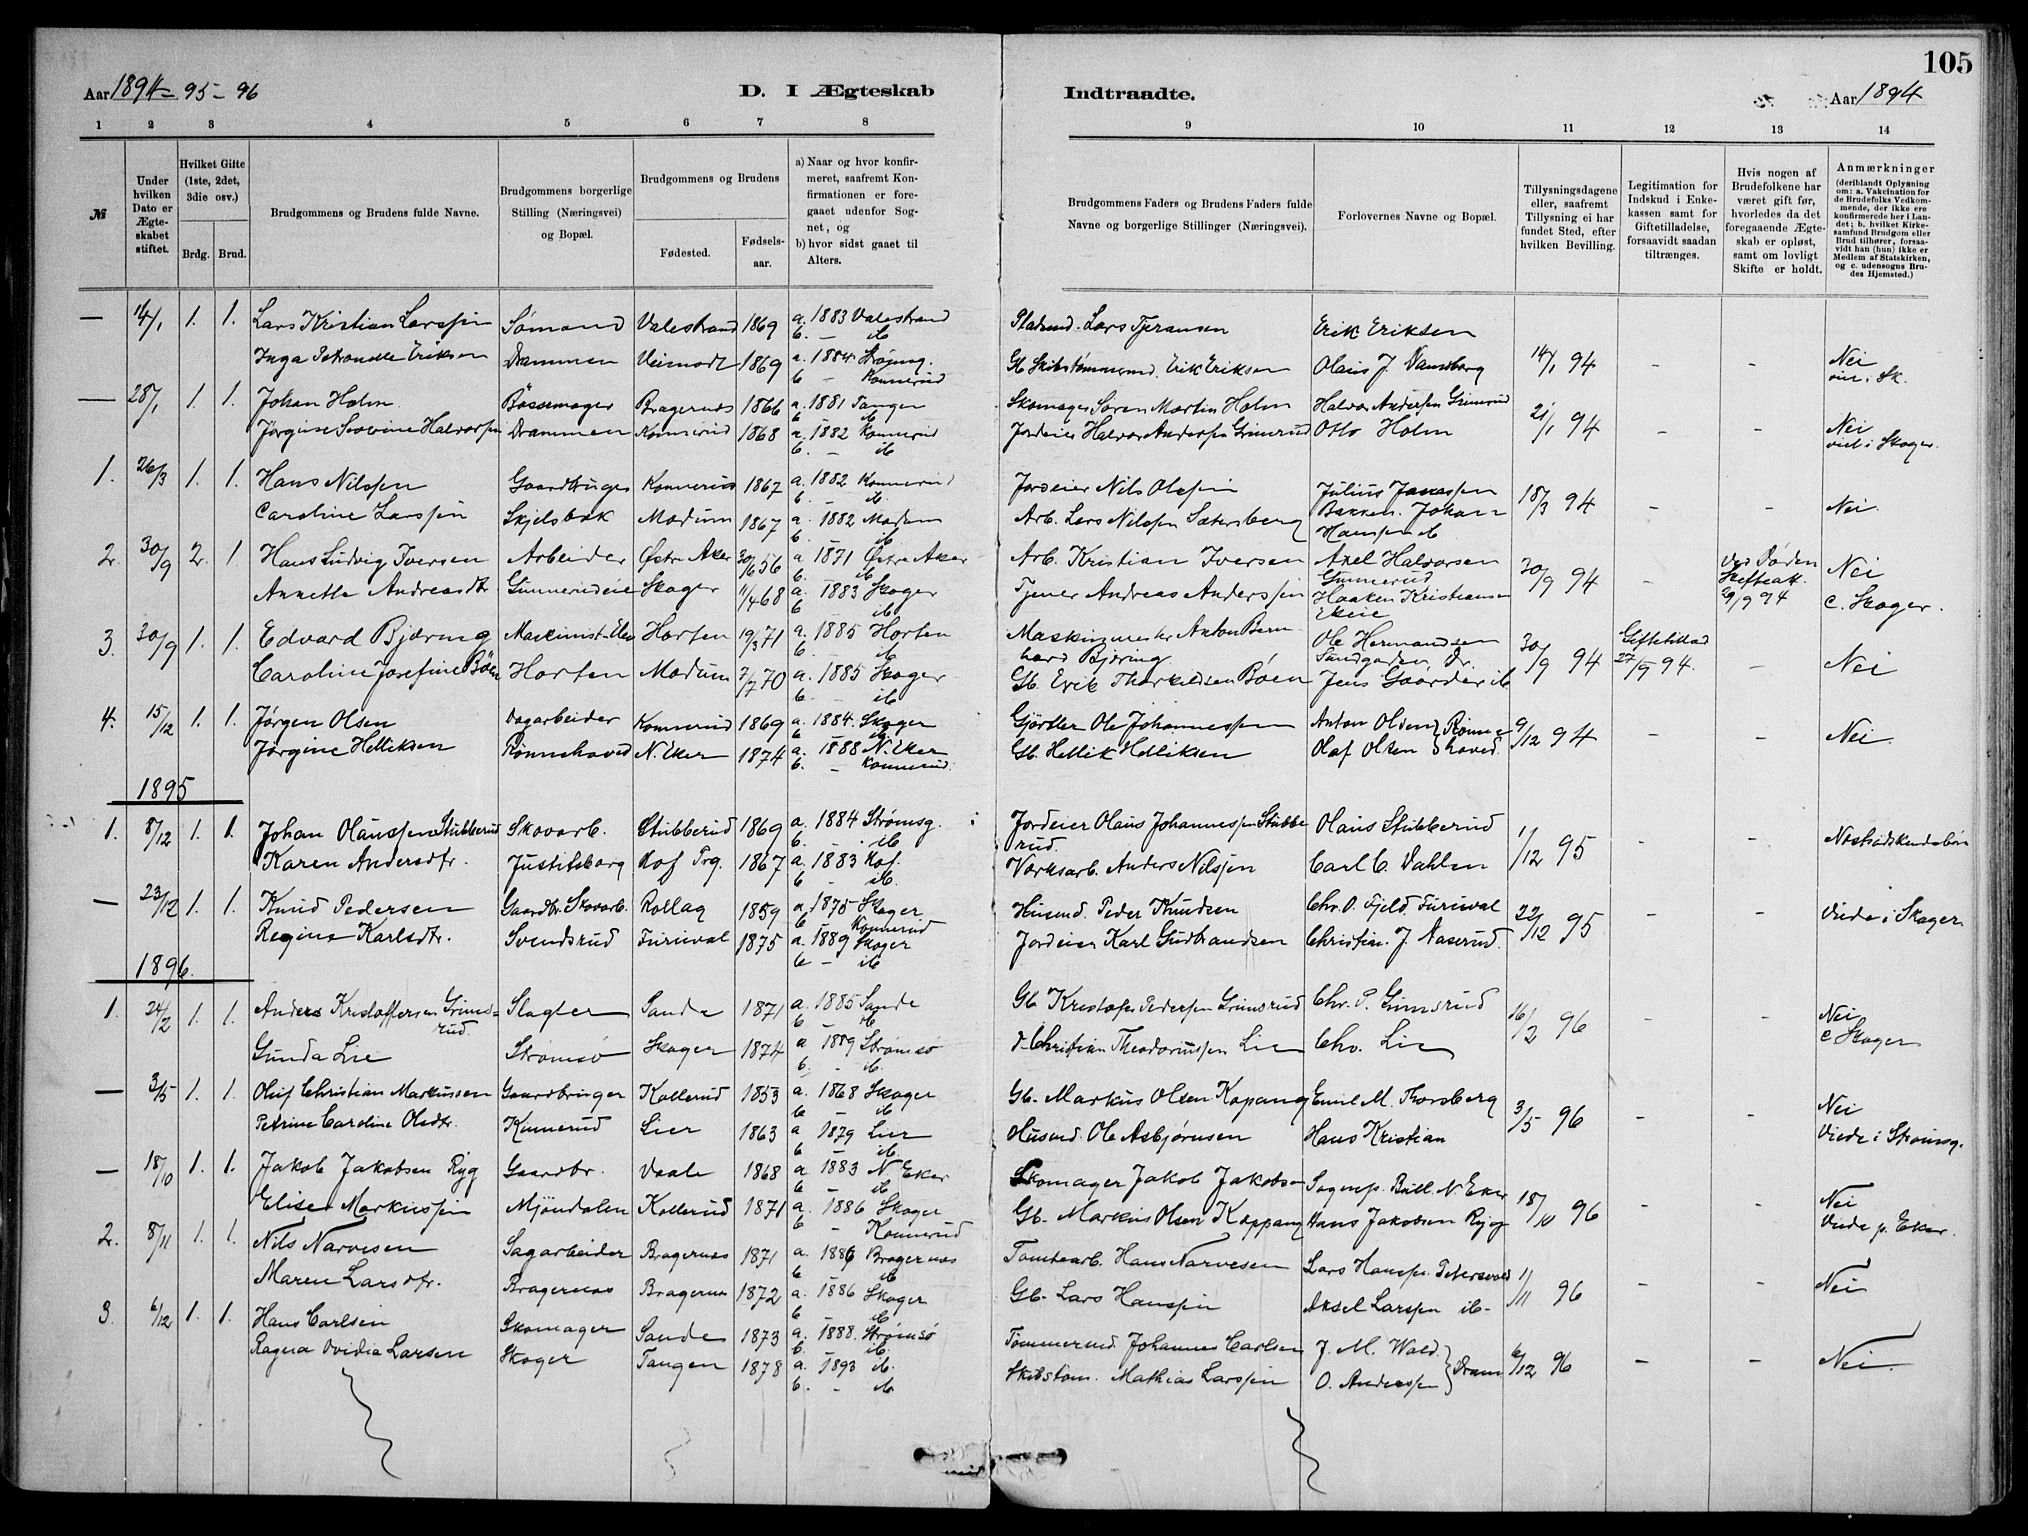 105
Aar 1894 - 95 - 96
D. I Ægteskab
Indtraadte.
Aar 1894
1 2 3 4 5 6 7 8
9 10 11 12 13 14
№
Under hvilken Dato er Ægteskabet stiftet.
Hvilket Gifte (1ste, 2det, 3die osv.)
Brdg. Brud.
Brudgommens og Brudens fulde Navne.
Brudgommens borgerlige Stilling (Næringsvei) og Bopæl.
Brudgommens og Brudens
Fødested.
Fødselsaar.
a) Naar og hvor konfirmeret, saafremt Konfirmationen er foregaaet udenfor Sognet, og
b) hvor sidst gaaet til Alters.
Brudgommens Faders og Brudens Faders fulde Navne og borgerlige Stillinger (Næringsvei).
Forlovernes Navne og Bopæl.
Tillysningsdagene eller, saafremt Tillysning ei har fundet Sted, efter hvilken Bevilling.
Legitimation for Indskud i Enkekassen samt for Giftetilladelse, forsaavidt saadan tiltrænges.
Hvis nogen af Brudefolkene har været gift før, hvorledes da det foregaaende Ægteskab er opløst, samt om lovligt Skifte er holdt.
Anmærkninger
(deriblandt Oplysning om: a. Vakcination for de Brudefolks Vedkommende, der ikke ere konfirmerede her i Landet; b. hvilket Kirkesamfund Brudgom eller Brud tilhører, forsaavidt han (hun) ikke er Medlem af Statskirken, og c. udensogns Brudes Hjemsted.)
— 14/1 1. 1. Lars Kristian Larssen Sømand Valestrand 1869 a. 1883 Valestrand Lars Tjeransen Erik Eriksen
b. — ib
Inga Petronelle Eriksen Drammen 1869 a. 1884 Strømsg. Gb Skibstømmermd. Erik Eriksen Olaus J. 14/1 94 - - Nei
b — Konnerud
— 28/1 1. 1. Johan Holm Bøssemager Bragernæs 1866 a. 1881 Tangen Skomager Søren Martin Holm Halvor Andersen Grimsrud
b ib
Jørgine Severine Halvorsen Drammen Konnerud 1868 a. 1882 Konnerud Jordeier Halvor Andersen Grimsrud Otto Holm 21/1 94 - - Nei
b. — ib viet i Skoger.
1. 26/3 1. 1. Hans Nilssen Gaardbruger Konnerud 1867 a. 1882 Konnerud Jordeier Nils Olssen Julius Jonassen
b. — ib
Caroline Larssen Skjelsbæk Modum 1867 a. 1882 Modum Arb. Lars Nilssen Sætersberg Bakken. Johan Hanssen ib 18/3 94 - - Nei.
b. ib
2. 30/9 2. 1. Hans Ludvig Iversen Arbeider Østre Aker 30/6 56 a 1871 Østre Aker Arb. Kristian Iversen Axel Halvorsen Gunnerud
b. ib
Annette Andreasdtr Gunnerudeie Skoger 11/4 68 a. 1883 Skoger Tjener Andreas Anderssen Haaken Kristiansen Ekeie 30/9 94 - Ved Døden Skifteatt. 29/9 94 Nei
b — ib c. Skoger.
3. 30/9 1. 1. Edvard Bjøring Maskinist-Elev Horten 19/3 71 a. 1885 Horten Maskinmester Anton Bernhard Bjøring Ole Hermansen
b. ib
Caroline Josefine Bøen Horten Modum 7/7 70 a. 1885 Skoger Gb. Erik Thorkildsen Bøen Jens Gaarder ib 30/9 94 Giftetillad 27/9 94. - Nei
b. — ib
4. 15/12 1. 1. Jørgen Olsen Dagarbeider Konnerud 1869 a. 1884. Skoger Gjørtler Ole Johannessen Anton Olsen
b ib
Jørgine Helliksen Rønnehoved N. Eker 1874 a. 1888 N. Eker Gb. Hellik Helliksen Olaf Olsen Rønnehoved. 9/12 94 - - Nei.
b. — Konnerud.
1895
1. 8/12 1. 1. Johan Olaussen Stubberud Skovarb. Stubberud 1869 a. 1884 Strømsg. Jordeier Olaus Johannessen Stubberud. Olaus Stubberud
b. — ib
Karen Andersdtr. Justitsborg Hof Prg. 1867 a. 1883 Hof. Værksarb. Anders Nilssen Carl C. Dahlen 1/12 95 - -
b — ib.
— 23/12 1. 1. Knud Pedersen Gaardbr. Skovarb. Rollag 1859 a. 1875 Skoger Husmd. Peder Knudsen Chr. O. Fjeld. Furuval
b Konnerud
Regine Karlsdtr. Svendsrud Furuval 1875 a. 1889 Skoger Jordeier Karl Gudbrandsen Christian. J. Naserud. 22/12 95 - - Viede i Skoger
b — ib
1896.
1. 24/2 1. 1. Anders Kristoffersen Grimsrud. Slagter Sande 1871 a. 1885 Sande Gb Kristoffer Pedersen Grimsrud Chr. P. Grimsrud
b ib
Gunda Lie Strømsø Skoger 1874 a 1889 Strømsø Christian Theodorussen Lie Chr. Lie 16/2 96 - - Nei
b. - ib. c Skoger
— 3/5 1. 1. Oluf Christian Markussen Gaardbruger Kollerud 1853 a. 1868 Skoger Gb. Markus Olsen Kopang Emil M. Thorsberg
b — ib
Petrine Caroline Olsdtr. Kinnerud Lier 1863 a 1879 Lier Husmd. Ole Asbjørnsen Hans Kristian 3/5 96 - - Nei
b ib. Viede i Strømsg.
— 18/10 1. 1. Jakob Jakobsen Ryg Gaardbr. Vaale 1868 a. 1883 N. Eker Skomager Jakob Jakobsen N. Eker
b — ib
Elise Markussen Mjøndalen Kollerud 1871 a. 1886 Skoger Gb. Markus Olsen Koppang Hans Jakobsen Ryg 18/10 96 - - Nei
b — Konnerud Viede p. Eker.
2. 8/11 1. 1. Nils Narvesen Sagarbeider Bragernæs 1871 a. 1886 Bragernæs Tomtearb. Hans Narvesen Lars Hanssen
b ib
Maren Larsdtr. Bragernæs Bragernæs 1872 a. 1886 Skoger Gb. Lars Hanssen Aksel Larssen ib- 1/11 96 - - Nei
b ib
3. 6/12 1. 1. Hans Carlsen Skomager Sande 1873 a. 1888. Strømsø Tømmermd. Johannes Carlsen J. M. Wold.
b. ib.
Ragna Ovidia Larsen Skoger Tangen 1878 a. 1893 ib. Skibstøm. Mathias Larssen O. Anderssen Dram 6/12 96 - - Nei.
b. - ib